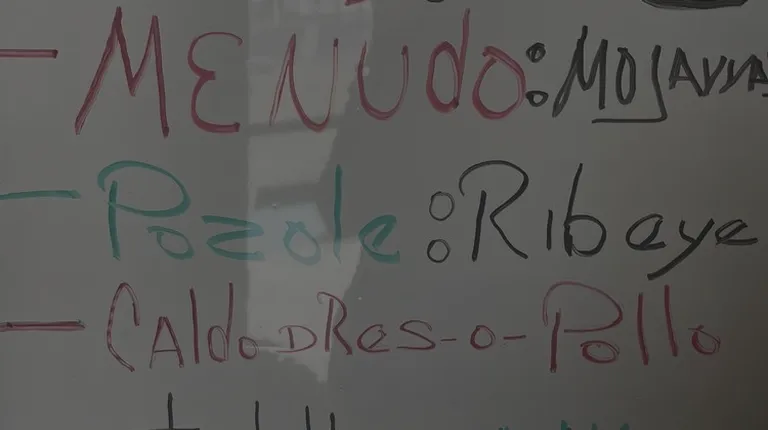 - MENUDO: MOJARRA
- Pozole: Ribeye
- CAldo D Res-o-Pollo